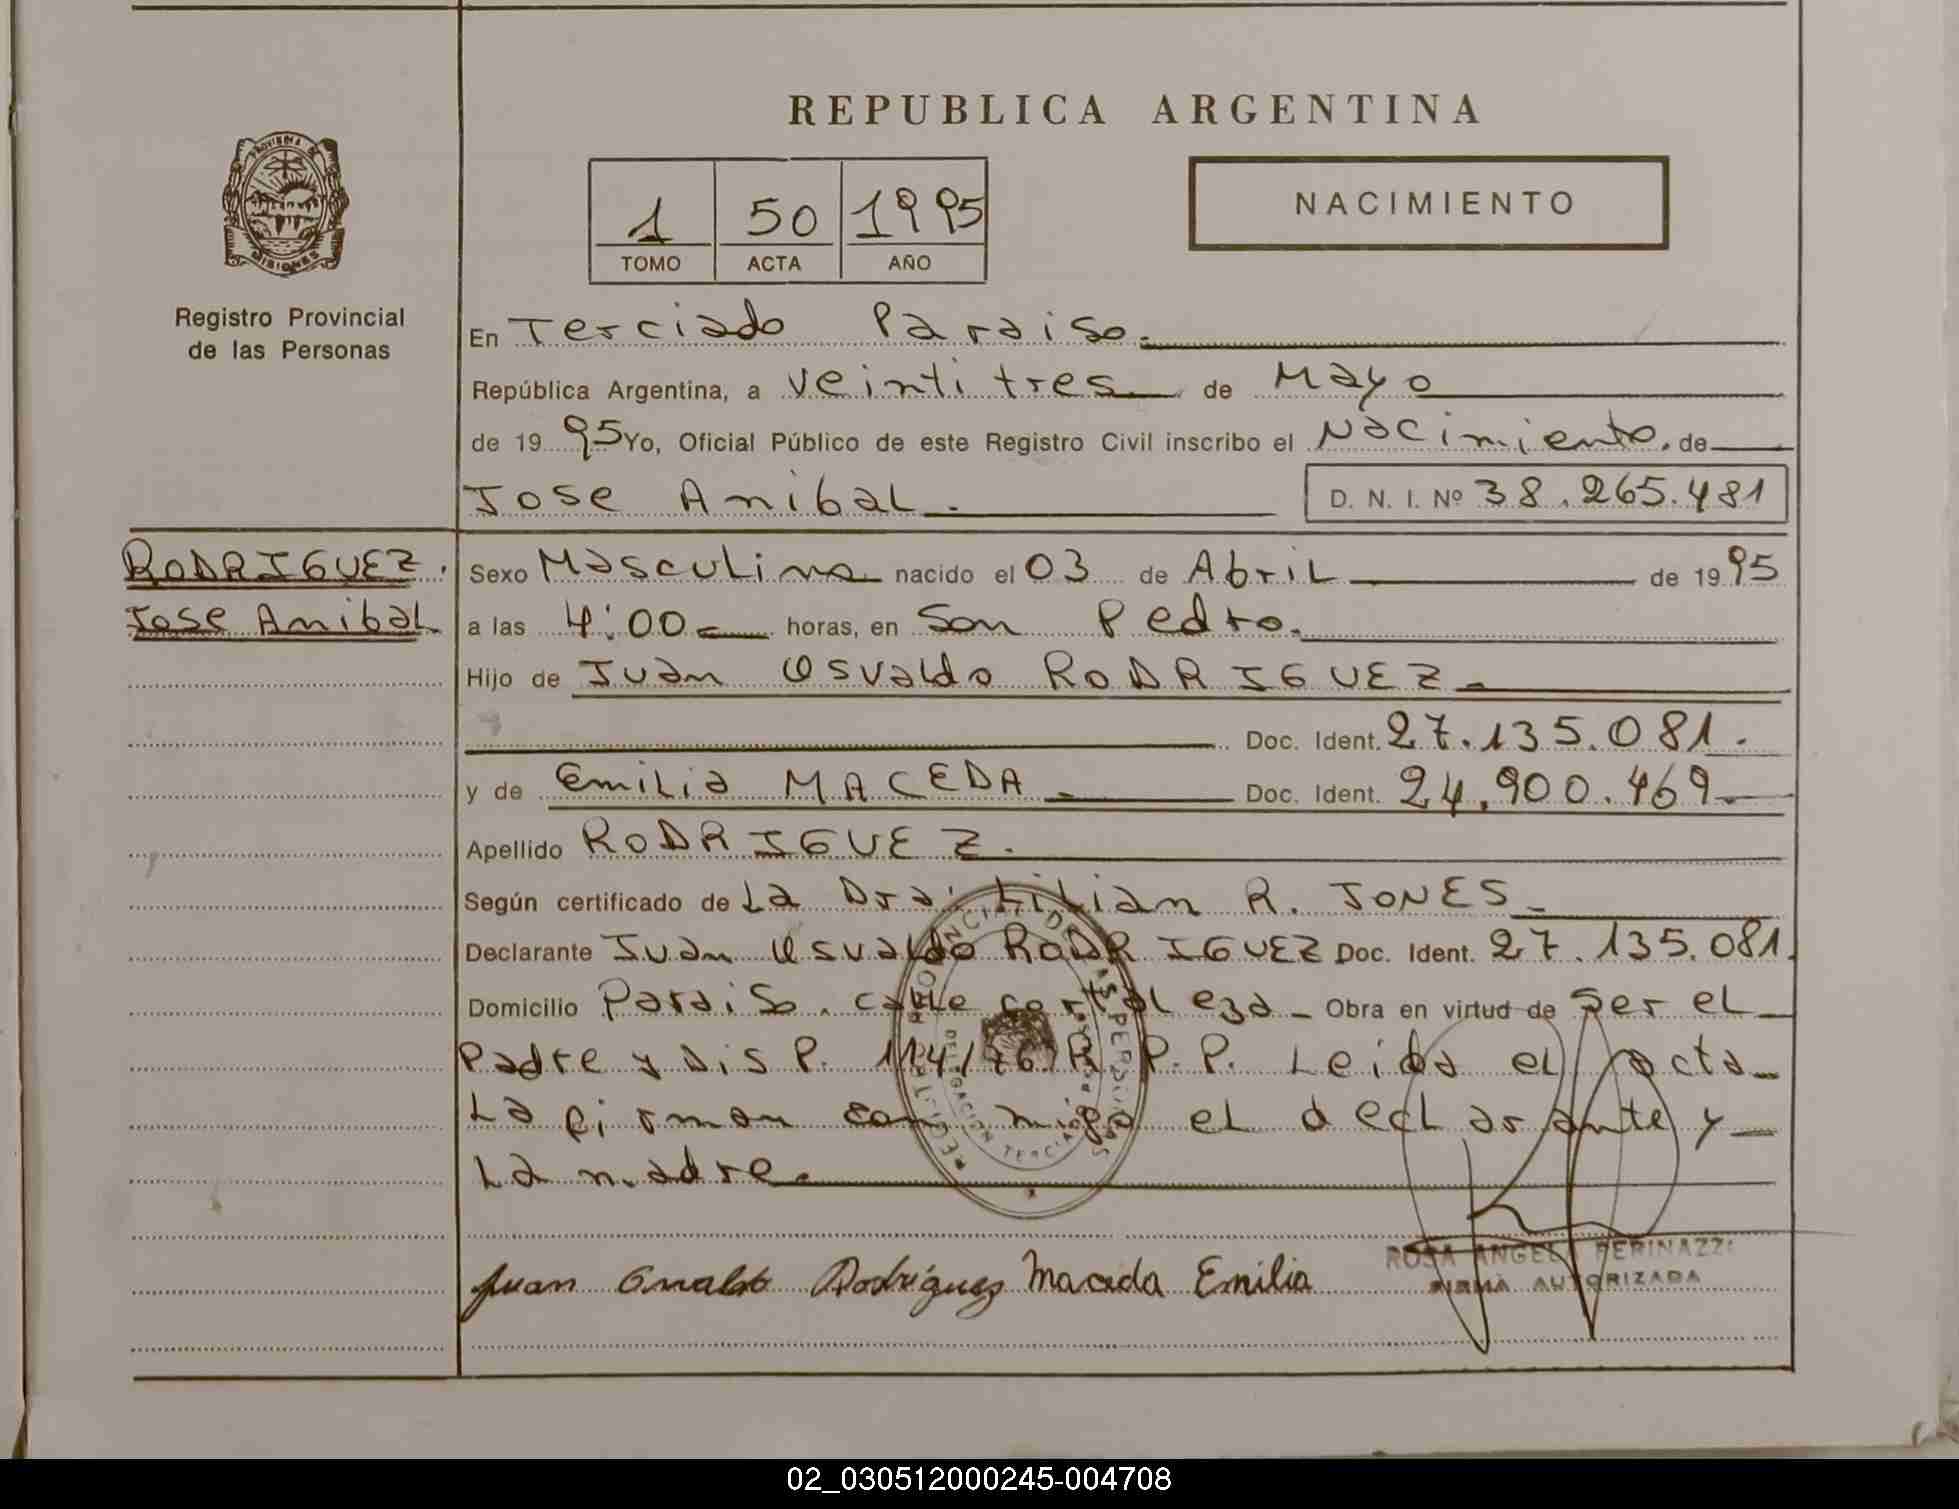 REPUBLICA ARGENTINA
PROVINCIA DE
MISIONES
Registro Provincial
de las Personas
1 50 1995
TOMO ACTA AÑO
NACIMIENTO
En Terciado Paraiso.
República Argentina, a veintitres de Mayo
de 1995 Yo, Oficial Público de este Registro Civil inscribo el Nacimiento. de
Jose Anibal. D. N. I. Nº 38.265.481
RODRIGUEZ.
Jose Anibal
Sexo Masculino nacido el 03 de Abril de 1995
a las 4:00 horas, en San Pedro.
Hijo de Juan Osvaldo RODRIGUEZ.
Doc. Ident. 27.135.081.
y de Emilia MACEDA. Doc. Ident. 24.900.469
Apellido RODRIGUEZ.
Según certificado de La Dra: Lilian R. JONES
Declarante Juan Osvaldo RODRIGUEZ Doc. Ident. 27.135.081.
Domicilio Paraiso. calle Fortaleza Obra en virtud de Ser el
Padre y Disp. 114/76 R.P.P. Leida el acta
La firman conmigo el declarante y
La madre.
Juan Osvaldo Rodríguez Maceda Emilia
ROSA ANGELA PERINAZZI
FIRMA AUTORIZADA
02_030512000245-004708